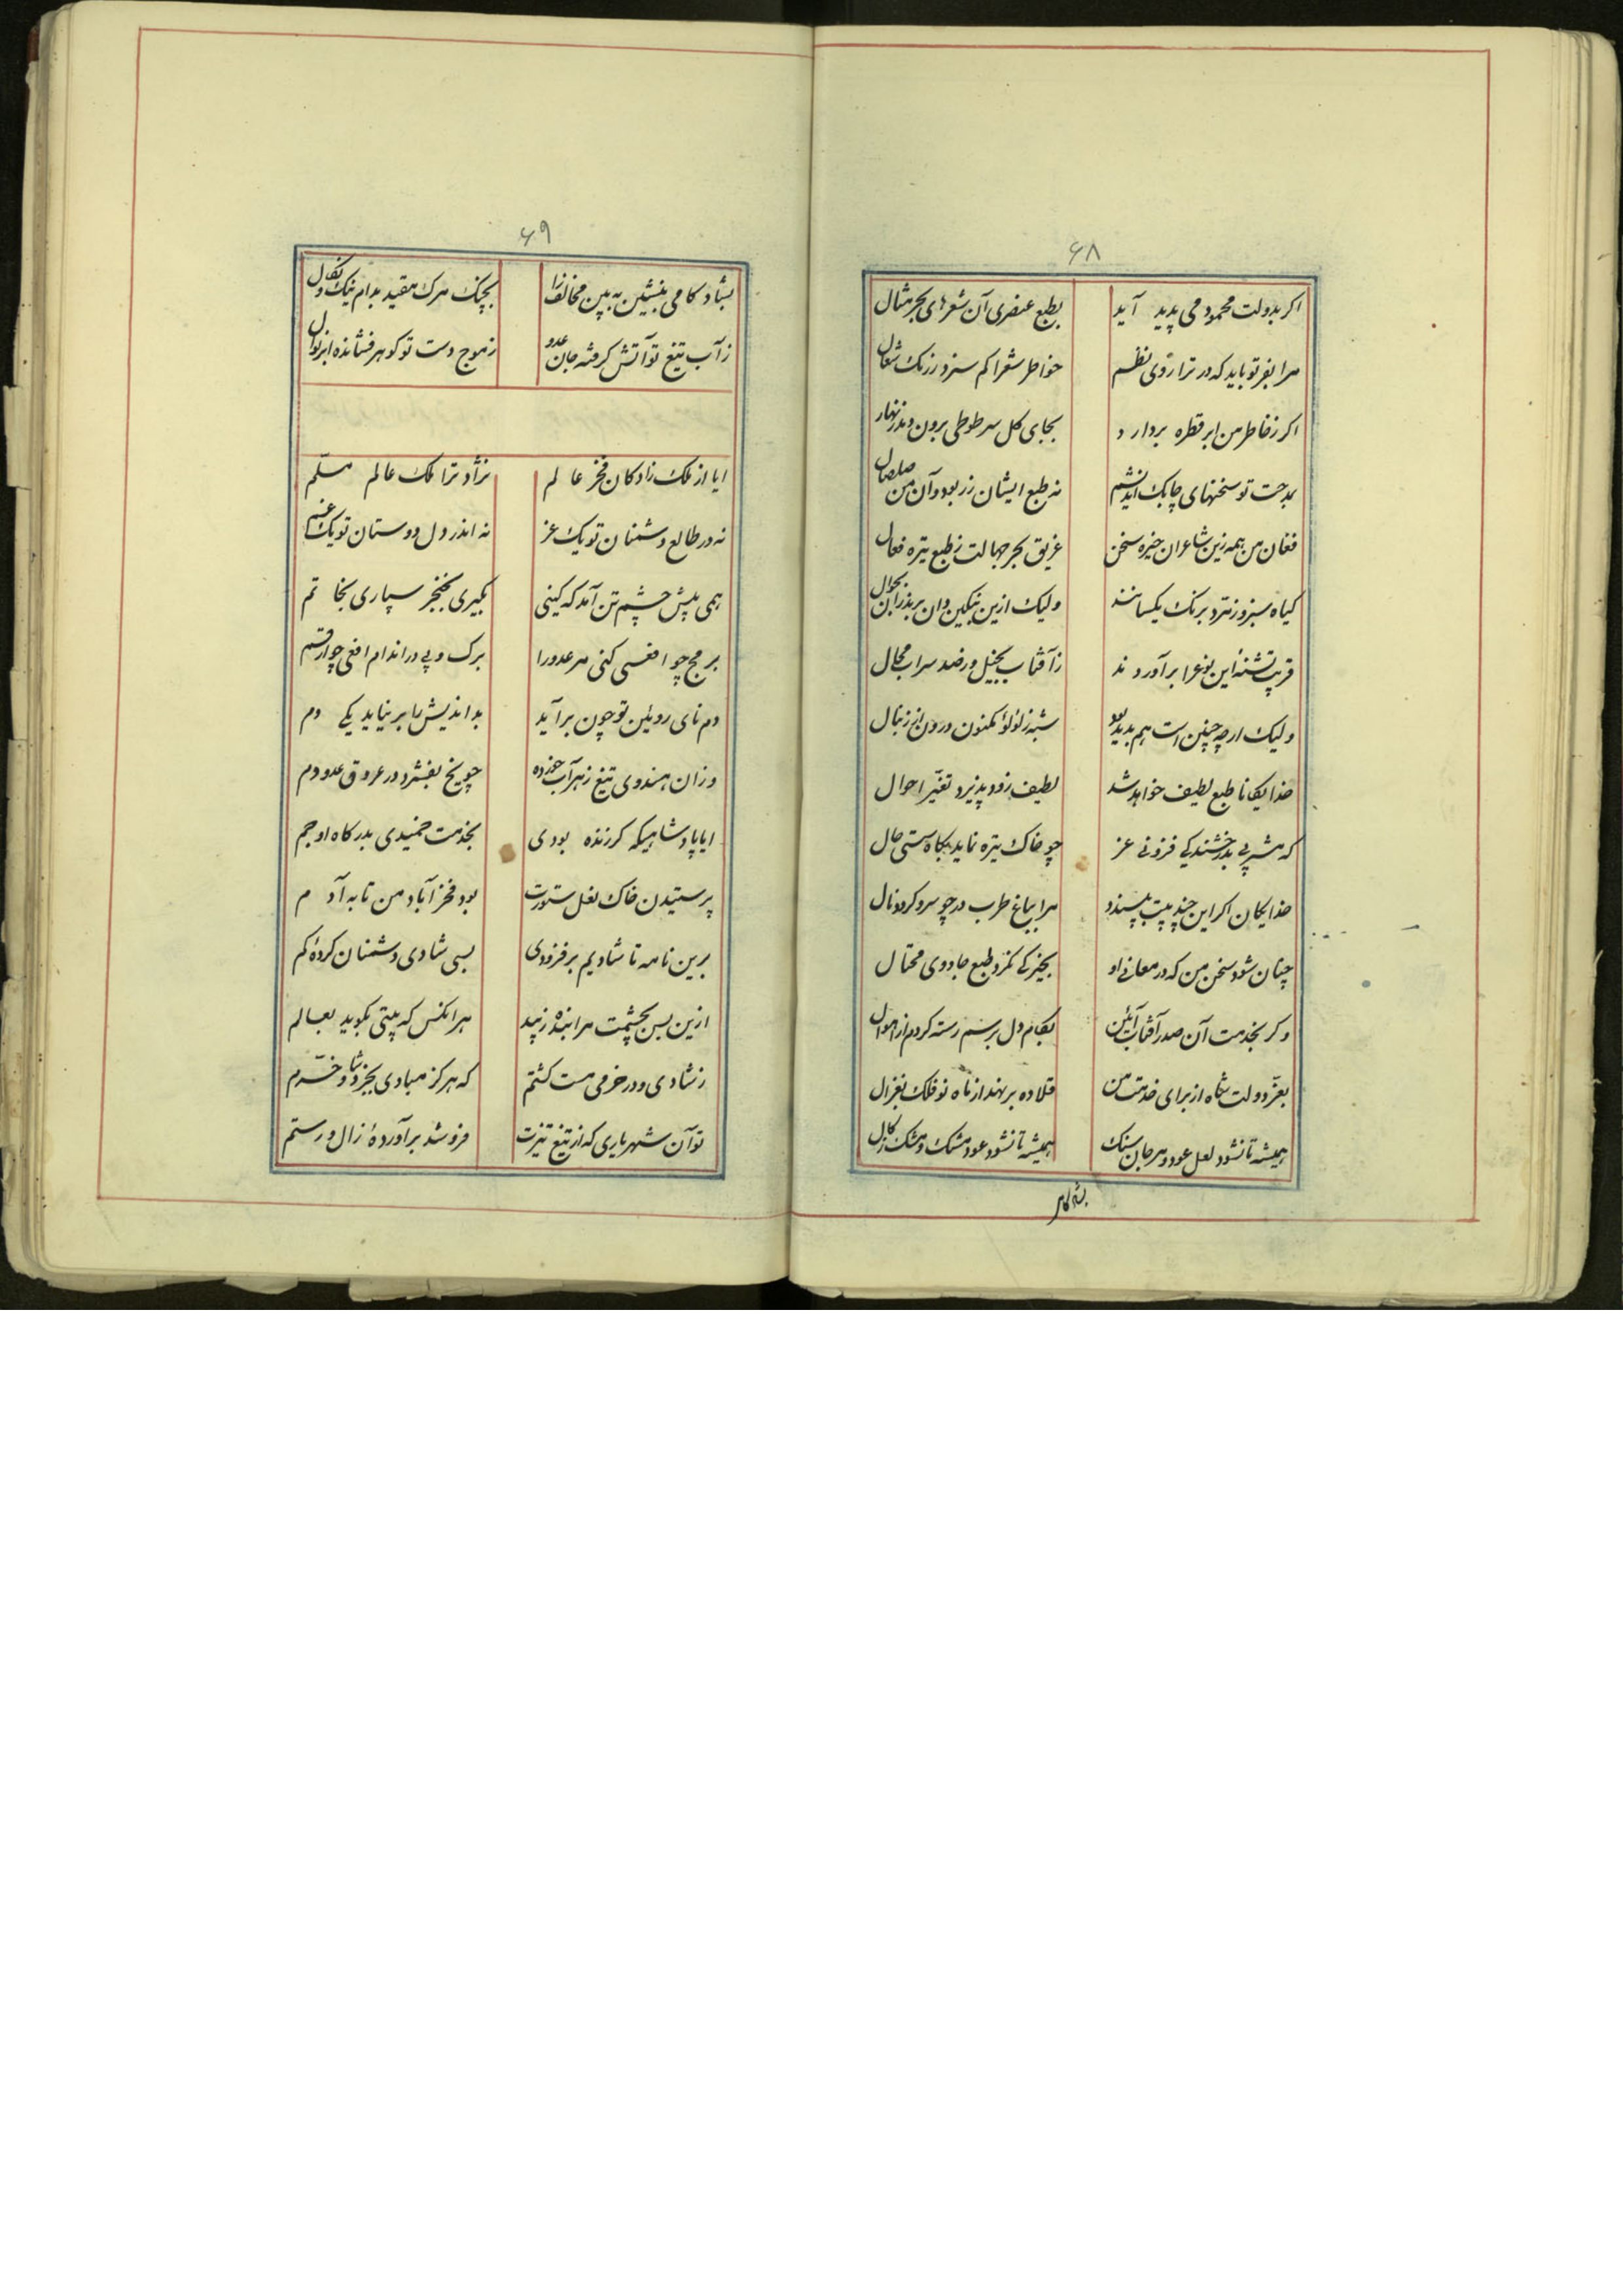 ۶۸
اکر بدولت محمود می پدید آید بطبع عنصری آن شعرهای بحر مثال
مرا بفر تو باید که در ترازوی نظم خواطر شعرا کم سزد زرنک شعال
اکر زخاطر من ابر قطره بردارد بجای کل سر طوطی برون دمد زنهار
بمدحت تو سخنهای چابک اندیشم نه طبع ایشان زر بود و آن من صلصال
فغان من همه زین شاعران خیره سخن غریق بحر جهالت ز طبع تیره فعال
کیاه سبز و زمرد برنک یکسانند ولیک ازین بنکین دان برند از آن بجوال
فریب تشنه این نوع را برآوردند زآفتاب بخیل و رضد سراب محال
ولیک ارچه چنین است هم پدید بود شبه ز لؤلؤ مکنون و روز از زنبال
خدایکانا طبع لطیف خواهد شد لطیف زود پذیرد تغیّر احوال
که مشتری بدرخشندکی فزونی عز چو خاک تیره نماید بکاه سستی حال
خدایکان اکر این چند بیت بپسندد مرا بباغ طرب در چو سرو کردد نال
چنان شود سخن من که در معانی او بخیرکی نکرد طبع جادوی محتال
وکر بخدمت آن صدر آفتاب آئین بکام دل برسم رسته کردم از اهوال
بعزّ دولت شاه از برای خدمت من قلاده برنهد از ماه نو فلک بغزال
همیشه تا نشود لعل عود و مرجان سنک همیشه تا نشود عود مشک و مشک زکال
بشادکامی
۶۹
بشادکامی بنشین به بین مخالف را بچنک مرک مقید بدام نیک و نکال
زآب تیغ تو آتش کرفته جان عدو ز موج دست تو کوهر فشانده ابر نوال
ایا از ملک زادکان فخر عالم نژاد ترا ملک عالم مسلّم
نه در طالع دشمنان تو یک عز نه اندر دل دوستان تو یک غم
همی پیش چشم تن آمد که کینی بکیری بخنجر سپاری بخاتم
برمح چو افعی کنی مر عدو را برک و پی در اندام افعی چو ارقم
دم نای روئین تو چون برآید بداندیش را برنیاید یکی دم
وزان هندوی تیغ زهرآب خورده چو یخ بفشرد در عروق عدو دم
ایا پادشاهیکه کر زنده بودی بخدمت خمیدی بدرکاه او جم
پرستیدن خاک نعل ستورت بود فخر آباد من تا به آدم
برین نامه تا شادیم برفزودی بسی شادی دشمنان کردهٔ کم
ازین بس بچشمت مرا بنده زیبد هرانکس که بیتی بکوید بعالم
ز شادی و در خرمی مست کشتم که هرکز مبادی بجز شاد و خرّم
تو آن شهریاری که از تیغ تیزت فروشد برآوردهٔ زال و رستم